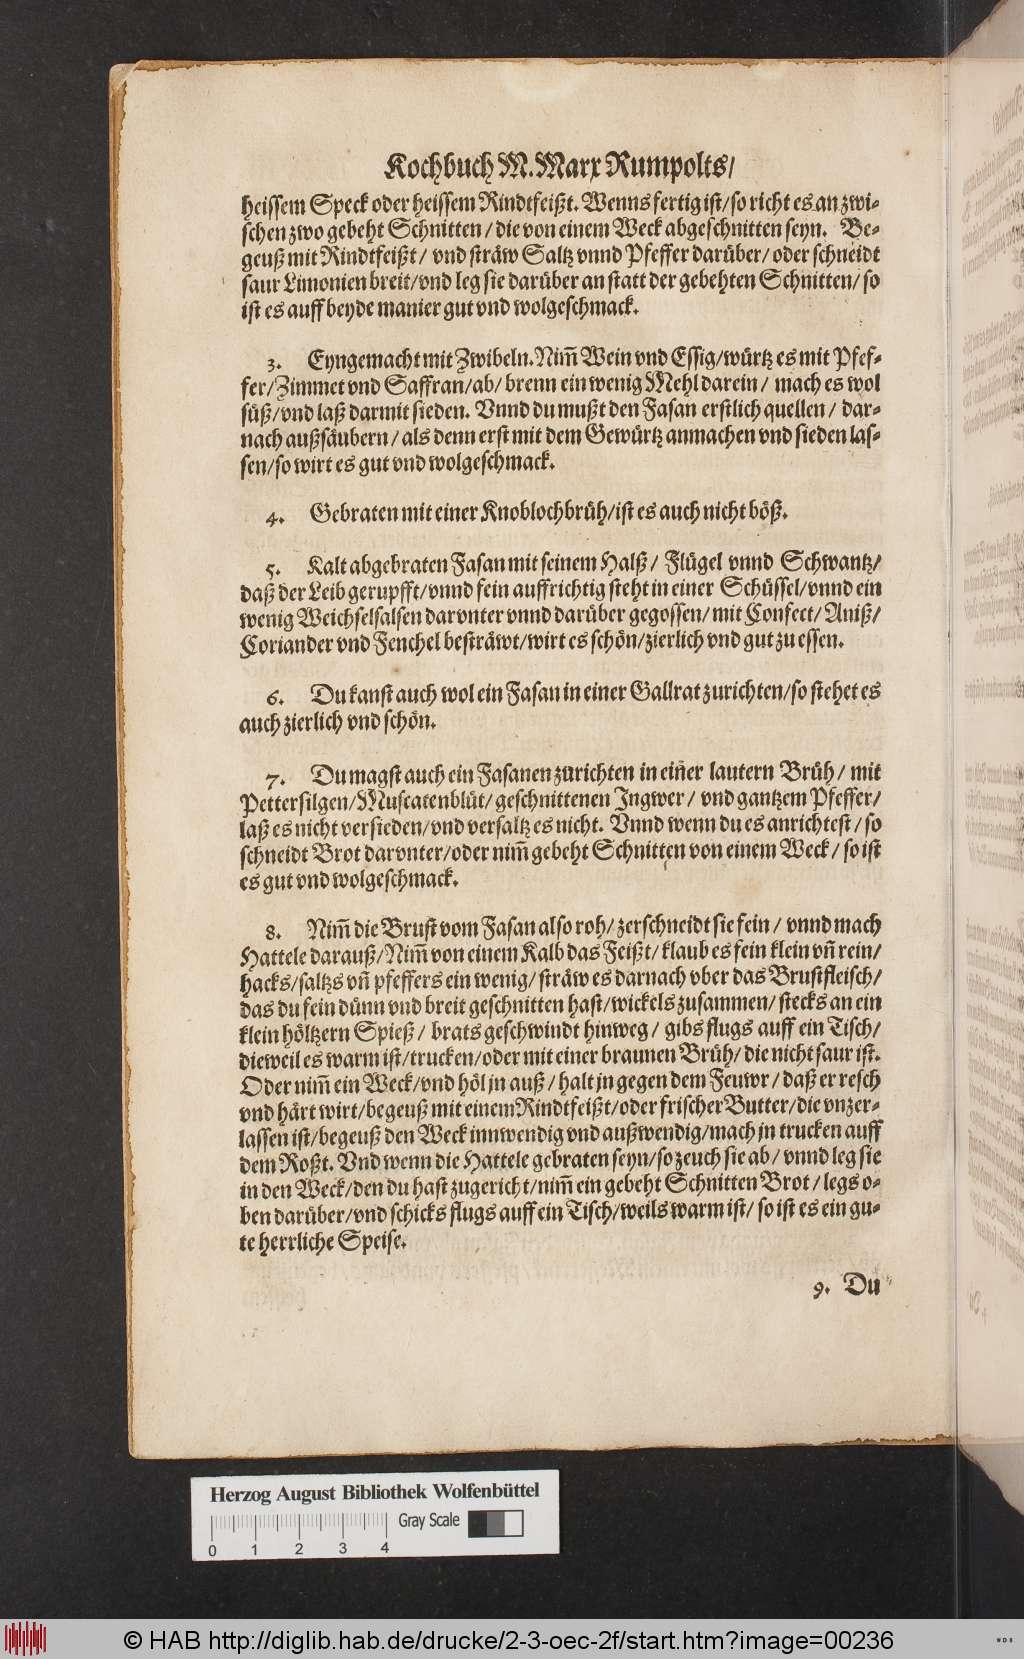 Kochbuch M. Marx Rumpolts/
heissem Speck oder heissem Rindtfeißt. Wenns fertig ist/ so richt es an zwi-
schen zwo gebeht Schnitten/ die von einem Weck abgeschnitten seyn. Be-
geuß mit Rindtfeißt/ vnd sträw Saltz vnnd Pfeffer darüber/ oder schneidt
saur Limonien breit/ vnd leg sie darüber an statt der gebehten Schnitten/ so
ist es auff beyde manier gut vnd wolgeschmack.
3. Eyngemacht mit Zwibeln. Nim̃ Wein vnd Essig/ würtz es mit Pfef-
fer/ Zimmet vnd Saffran/ ab/ brenn ein wenig Mehl darein/ mach es wol
süß/ vnd laß darmit sieden. Vnnd du mußt den Fasan erstlich quellen/ dar-
nach außsäubern/ als denn erst mit dem Gewürtz anmachen vnd sieden las-
sen/ so wirt es gut vnd wolgeschmack.
4. Gebraten mit einer Knoblochbrüh/ ist es auch nicht böß.
5. Kalt abgebraten Fasan mit seinem Halß/ Flügel vnnd Schwantz/
daß der Leib gerupfft/ vnnd fein auffrichtig steht in einer Schüssel/ vnnd ein
wenig Weichselsalsen darvnter vnnd darüber gegossen/ mit Confect/ Aniß/
Coriander vnd Fenchel besträwt/ wirt es schön/ zierlich vnd gut zu essen.
6. Du kanst auch wol ein Fasan in einer Gallrat zurichten/ so stehet es
auch zierlich vnd schön.
7. Du magst auch ein Fasanen zurichten in einer lautern Brüh/ mit
Pettersilgen/ Muscatenblüt/ geschnittenen Ingwer/ vnd gantzem Pfeffer/
laß es nicht versieden/ vnd versaltz es nicht. Vnnd wenn du es anrichtest/ so
schneidt Brot darvnter/ oder nim̃ gebeht Schnitten von einem Weck/ so ist
es gut vnd wolgeschmack.
8. Nim̃ die Brust vom Fasan also roh/ zerschneidt sie fein/ vnnd mach
Hattele darauß/ Nim̃ von einem Kalb das Feißt/ klaub es fein klein vñ rein/
hacks/ saltzs vñ pfeffers ein wenig/ sträw es darnach vber das Brustfleisch/
das du fein dünn vnd breit geschnitten hast/ wickels zusammen/ stecks an ein
klein höltzern Spieß/ brats geschwindt hinweg/ gibs flugs auff ein Tisch/
dieweil es warm ist/ trucken/ oder mit einer braunen Brüh/ die nicht saur ist.
Oder nim̃ ein Weck/ vnd höl jn auß/ halt jn gegen dem Feuwr/ daß er resch
vnd härt wirt/ begeuß mit einem Rindtfeißt/ oder frischer Butter/ die vnzer-
lassen ist/ begeuß den Weck innwendig vnd außwendig/ mach jn trucken auff
dem Roßt. Vnd wenn die Hattele gebraten seyn/ so zeuch sie ab/ vnnd leg sie
in den Weck/ den du hast zugericht/ nim̃ ein gebeht Schnitten Brot/ legs o-
ben darüber/ vnd schicks flugs auff ein Tisch/ weils warm ist/ so ist es ein gu-
te herrliche Speise.
9. Du
Herzog August Bibliothek Wolfenbüttel
Gray Scale
0 1 2 3 4
© HAB http://diglib.hab.de/drucke/2-3-oec-2f/start.htm?image=00236